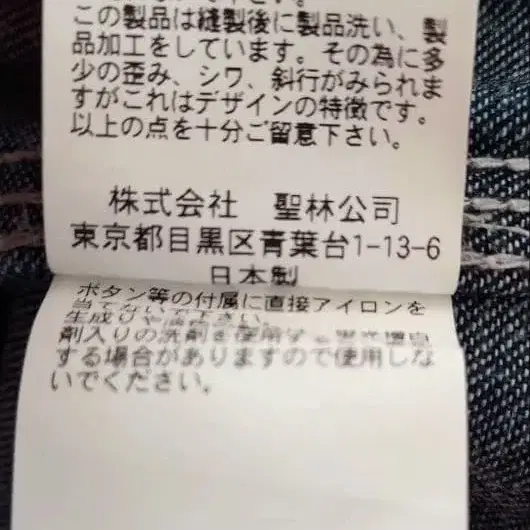 下さい。
この製品は縫製後に製品洗い、製
品加工をしています。その為に多
少の歪み、シワ、斜行がみられま
すがこれはデザインの特徴です。
以上の点を十分ご留意下さい。
株式会社 聖林公司
東京都目黒区青葉台1-13-6
日本製
ボタン等の付属に直接アイロンを
剤入りの洗剤を使用
する場合がありますので使用しな
いでください。